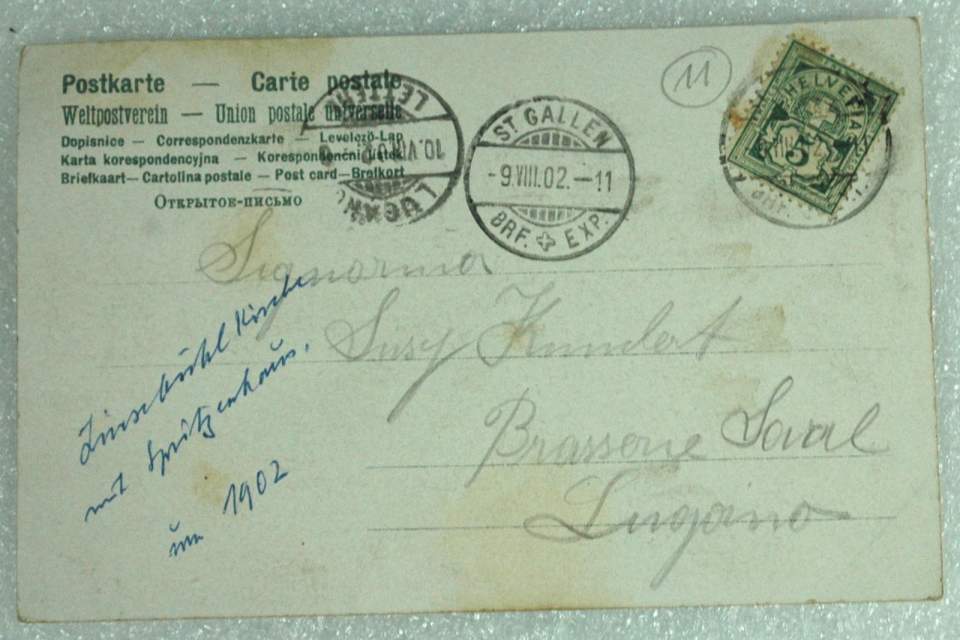 Postkarte — Carie postale
Weltpostverein — Union postale universelle
Dopisnice — Correspondenzkarte — Levelező-Lap
Karta korespondencyjna — Korespondenční lístek
Briefkaart — Cartolina postale — Post card — Brefkort
Открытое-письмо
11
HELVETIA
5
ST. GALLEN
- 9.VIII.02. – 11
BRF. EXP.
10.VIII.02
Signorina
Susy Kundert
Brasserie
Lugano
Linsebühl Kirche
mit Spritzenhaus.
um 1902